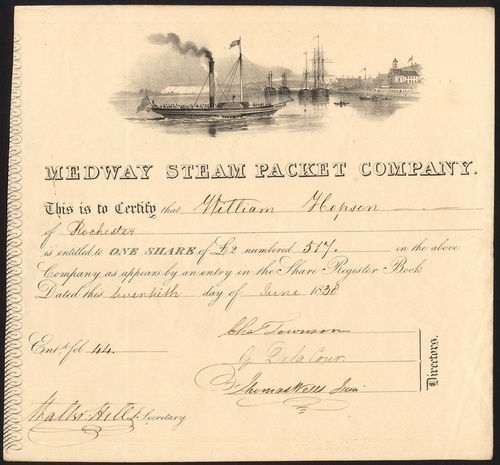 MEDWAY STEAM PACKET COMPANY.
This is to Certify that William Hopson
of Rochester
is entitled to ONE SHARE of £2 numbered 517. in the above
Company as appears by an entry in the Share Register Book
Dated this twentieth day of June 1838
Chas. Townson
Entd. fol 44.
G. Delacour
Thomas Wells Junr.
Directors.
Hill Secretary